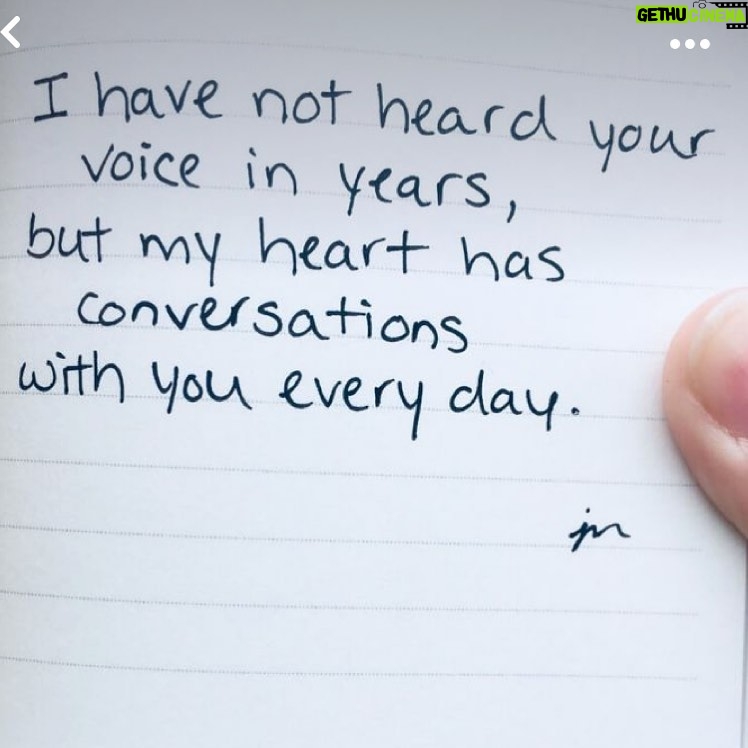 GETHU CINEMA
I have not heard your
voice in years,
but my heart has
conversations
with you every day.
jm